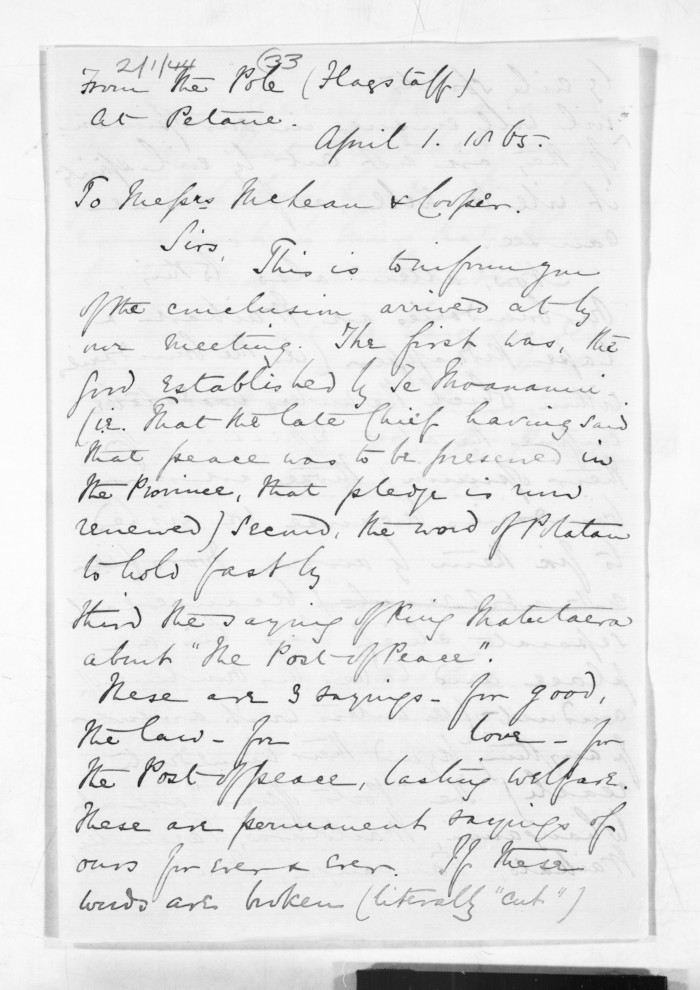 2/1/44 33
From the Pole (Flagstaff)
at Petane.
April 1. 1865.
To Messrs McLean & Cooper.
Sirs, This is to inform you
of the conclusion arrived at by
our meeting. The first was, the
good established by Te Moananui
(i.e. That the late Chief having said
that peace was to be preserved in
the Province, that pledge is now
renewed) Second, the word of Potatau
to hold fast by
third the saying of King Matutaera
about "The Post of Peace".
These are 3 sayings - for good,
the law - for love - for
the Post of peace, lasting welfare.
These are permanent sayings of
ours for ever & ever. If these
words are broken (literally "cut")